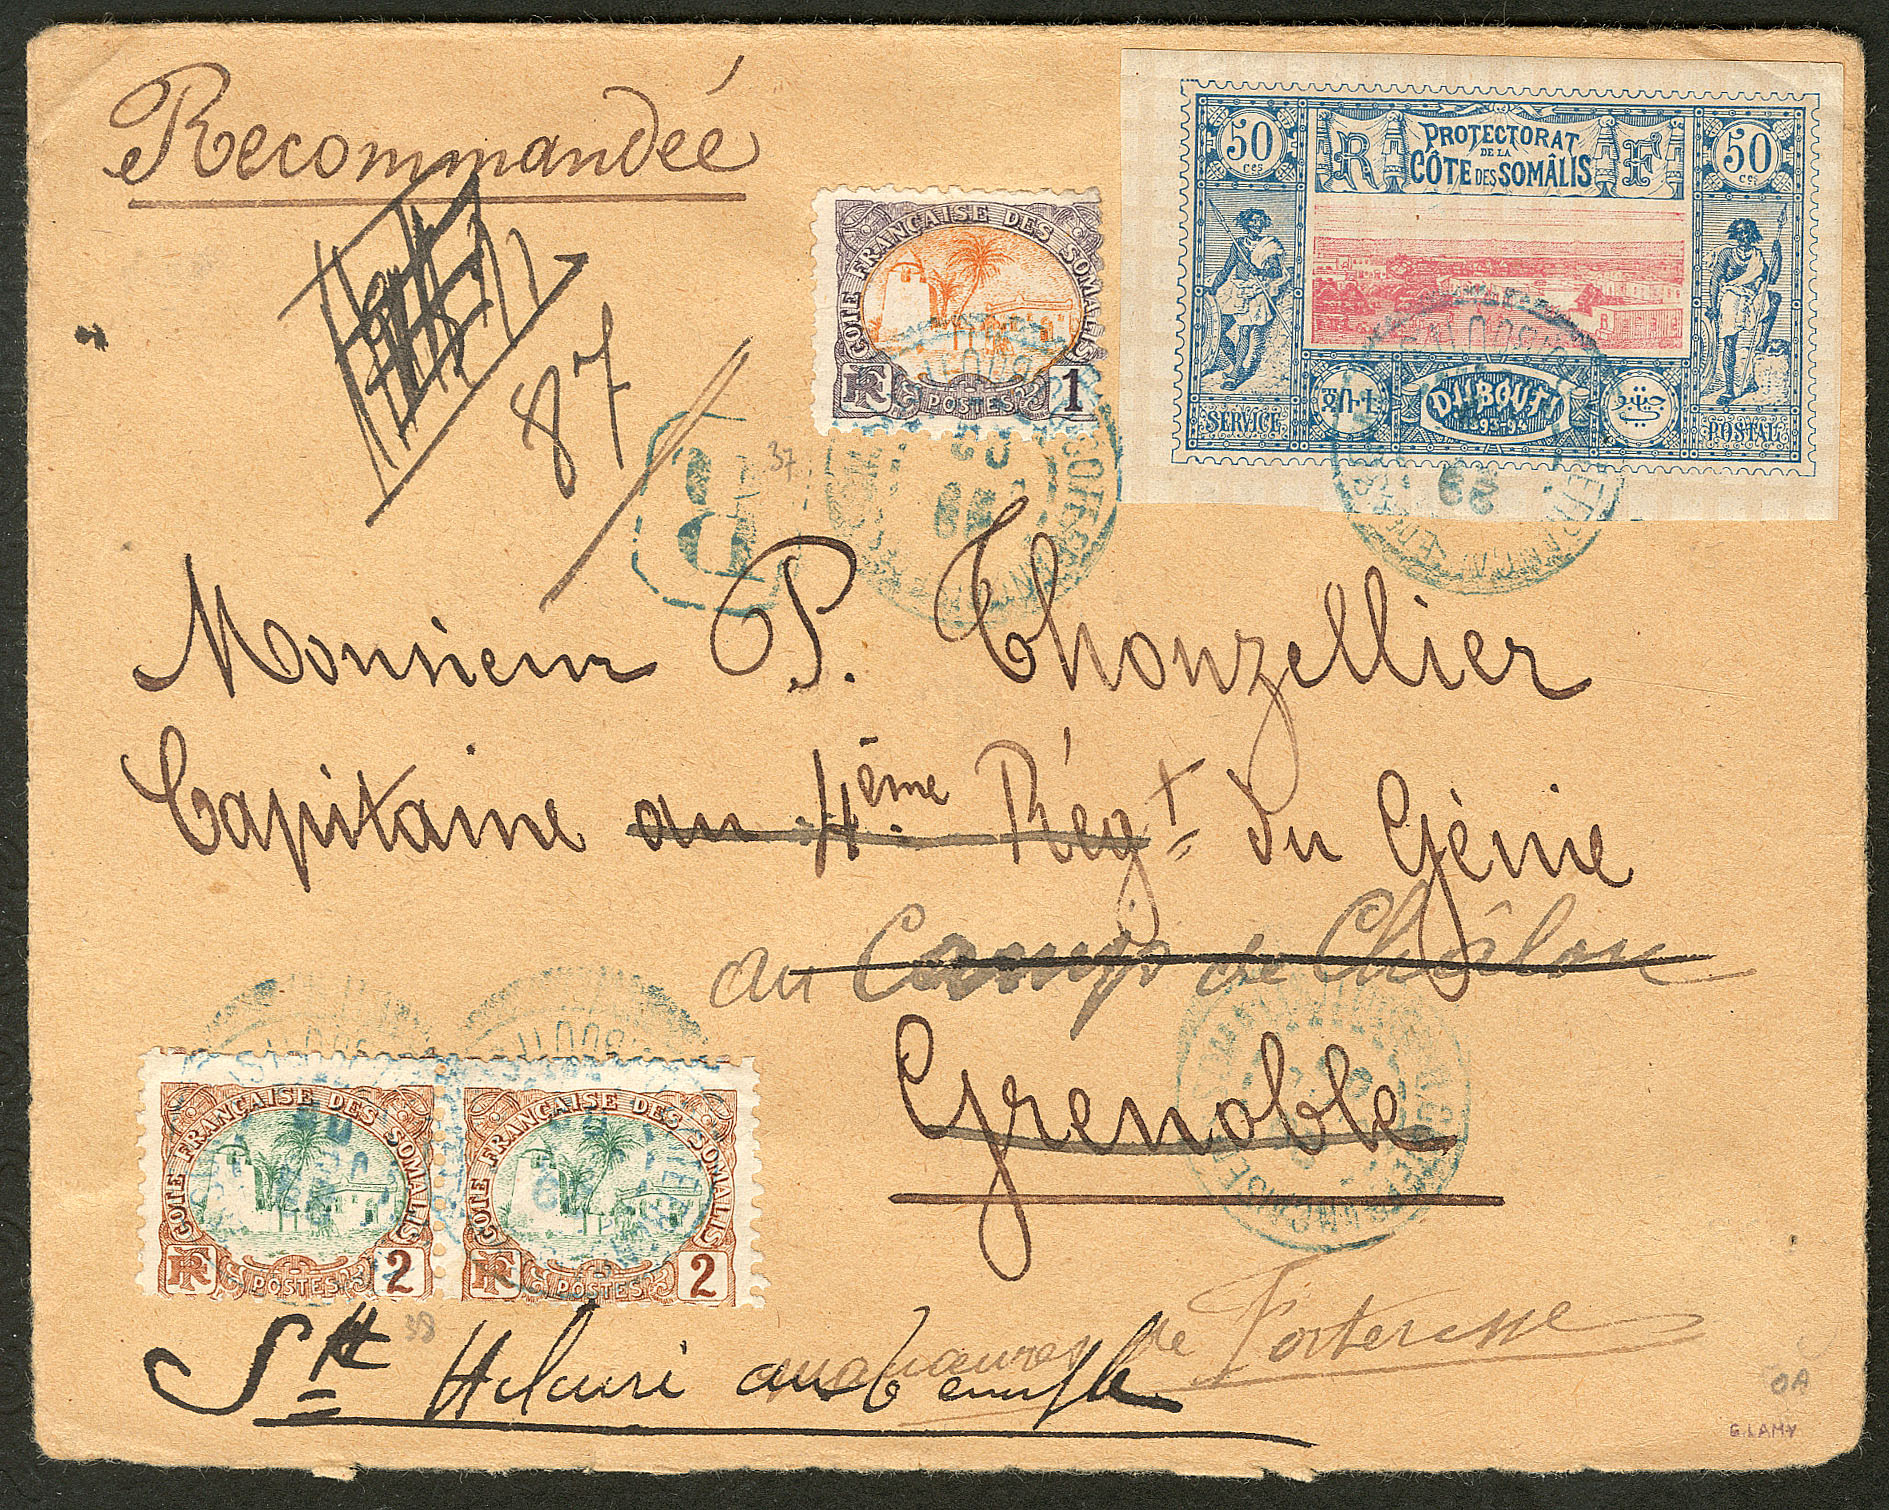 Recommandée
50 ces
PROTECTORAT
DE LA
CÔTE DES SOMÂLIS
50 ces
R F
DJIBOUTI
1893-94
SERVICE
POSTAL
COTE FRANÇAISE DES SOMALIS
RF POSTES 1
87
R
37
Monsieur P. Thouzellier
Capitaine au 4ème Régt du Génie
au Camp de Châlon
Grenoble
COTE FRANÇAISE DES SOMALIS
RF POSTES 2
COTE FRANÇAISE DES SOMALIS
RF POSTES 2
38
manœuvres de Forteresse
St
OA
G. LAMY